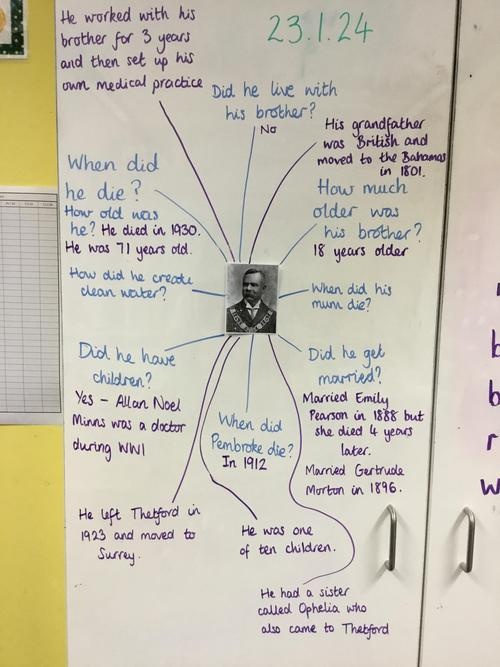 He worked with his
brother for 3 years
and then set up his
own medical practice
23.1.24
Did he live with
his brother?
No
His grandfather
was British and
moved to the Bahamas
in 1801.
When did
he die?
How old was
he? He died in 1930.
He was 71 years old.
How much
older was
his brother?
18 years older
How did he create
clean water?
When did his
mum die?
Did he have
children?
Yes - Allan Noel
Minns was a doctor
during WW1
When did
Pembroke die?
In 1912
Did he get
married?
Married Emily
Pearson in 1888 but
she died 4 years
later.
Married Gertrude
Morton in 1896.
He left Thetford in
1923 and moved to
Surrey.
He was one
of ten children.
He had a sister
called Ophelia who
also came to Thetford
b
b
r
w